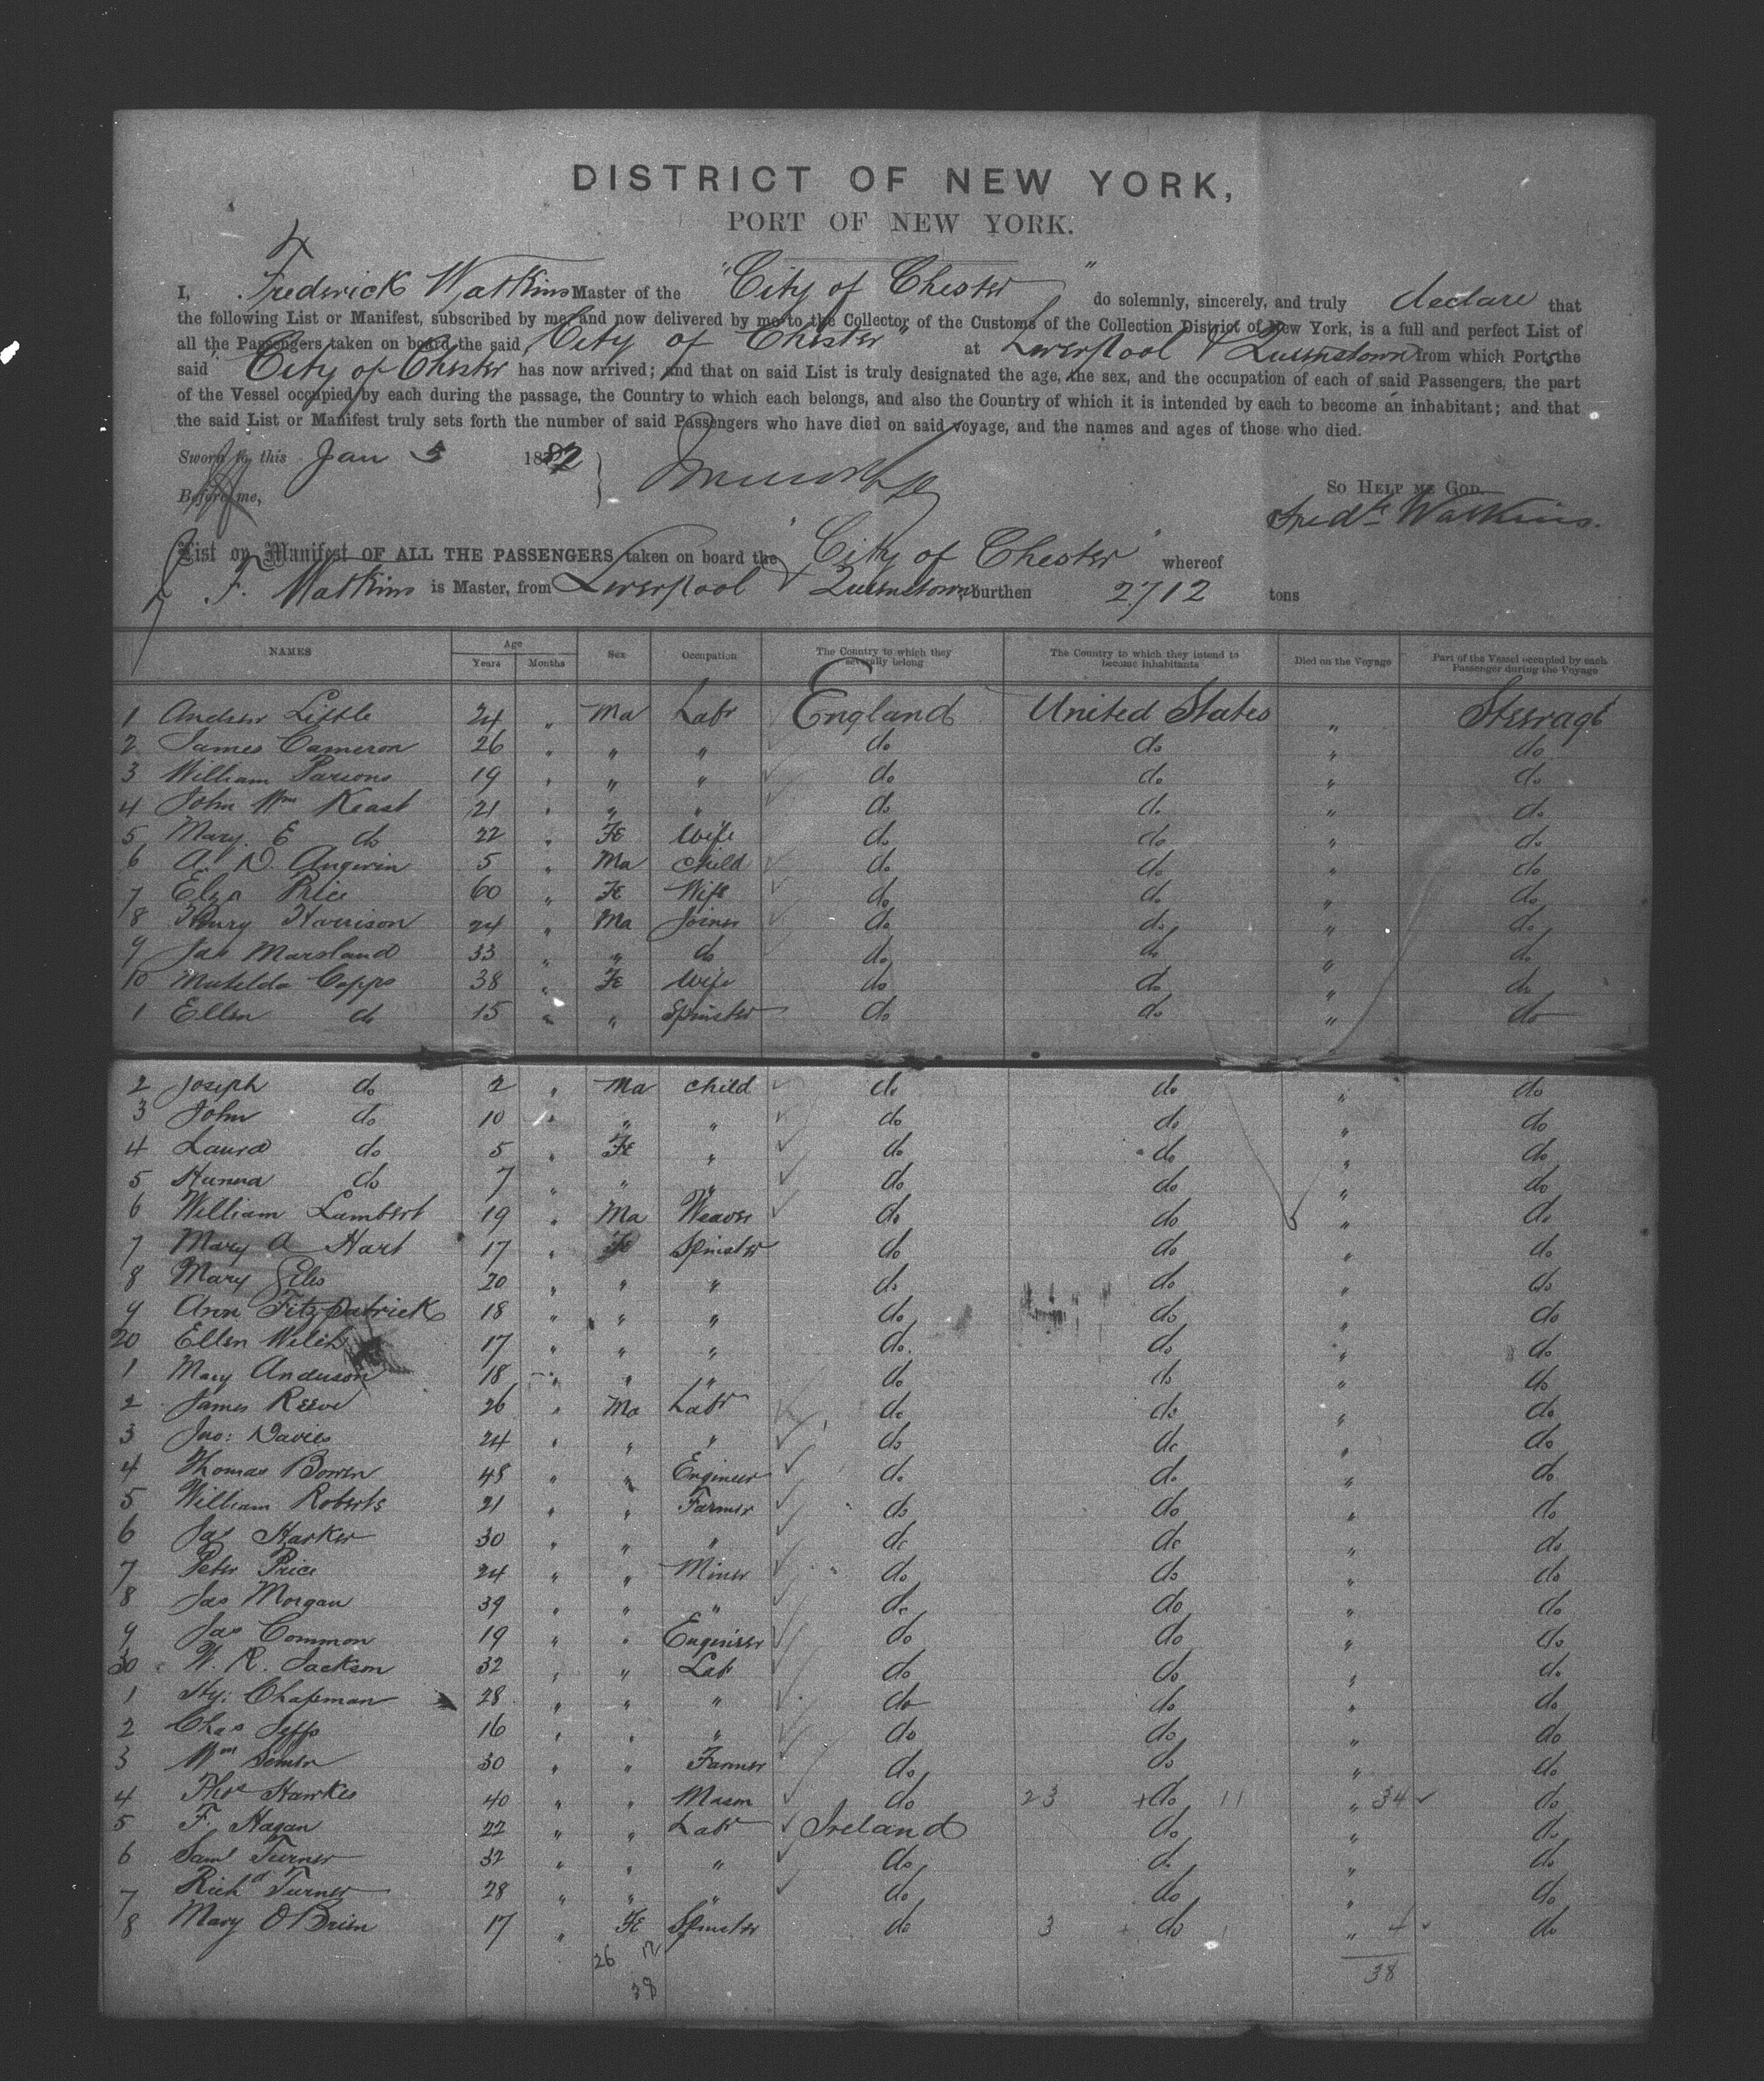 DISTRICT OF NEW YORK,
PORT OF NEW YORK.
I, Frederick Watkins Master of the "City of Chester" do solemnly, sincerely, and truly declare that
the following List or Manifest, subscribed by me and now delivered by me to the Collector of the Customs of the Collection District of New York, is a full and perfect List of
all the Passengers taken on board the said "City of Chester" at Liverpool & Queenstown from which Ports the
said City of Chester has now arrived; and that on said List is truly designated the age, the sex, and the occupation of each of said Passengers, the part
of the Vessel occupied by each during the passage, the Country to which each belongs, and also the Country of which it is intended by each to become an inhabitant; and that
the said List or Manifest truly sets forth the number of said Passengers who have died on said voyage, and the names and ages of those who died.
Sworn to this Jan 5 1882
Before me,
So Help me God.
Fredk Watkins.
List or Manifest OF ALL THE PASSENGERS taken on board the "City of Chester" whereof
F. Watkins is Master, from Liverpool & Queenstown burthen 2712 tons
NAMES Age Years Months Sex Occupation The Country to which they severally belong The Country to which they intend to become inhabitants Died on the Voyage Part of the Vessel occupied by each Passenger during the Voyage
1 Andrew Little 24 " Ma Labr England United States " Steerage
2 James Cameron 26 " " " do do " do
3 William Parsons 19 " " " do do " do
4 John Wm Keast 21 " " " do do " do
5 Mary E do 22 " Fe Wife do do " do
6 A. N. Angwin 5 " Ma Child do do " do
7 Elza Price 60 " Fe Wife do do " do
8 Henry Harrison 24 " Ma Joiner do do " do
9 Jas Marsland 33 " " do do do " do
10 Matilda Capps 38 " Fe Wife do do " do
1 Ellen do 15 " " Spinster do do " do
2 Joseph do 2 " Ma Child do do " do
3 John do 10 " " " do do " do
4 Laura do 5 " Fe " do do " do
5 Hanna do 7 " " " do do " do
6 William Lambert 19 " Ma Weaver do do " do
7 Mary A Hart 17 " Fe Spinster do do " do
8 Mary 20 " " " do do " do
9 Ann Fitzpatrick 18 " " " do do " do
20 Ellen Welch 17 " " " do do " do
1 Mary Anderson 18 " " " do do " do
2 James Reeve 26 " Ma Labr do do " do
3 Jno: Davies 24 " " " do do " do
4 Thomas Bowen 48 " " Engineer do do " do
5 William Roberts 21 " " Farmer do do " do
6 Jas Harker 30 " " " do do " do
7 Peter Price 24 " " Miner do do " do
8 Jas Morgan 39 " " " do do " do
9 Jas Common 19 " " Engineer do do " do
30 W. R. Jackson 32 " " Labr do do " do
1 Hy: Chapman 28 " " " do do " do
2 Chas Jeffs 16 " " " do do " do
3 Wm 30 " " Farmer do do " do
4 Thos Hawkes 40 " " Mason do 23 + do 11 " 34 do
5 F. Hagan 22 " " Labr Ireland do " do
6 Saml Turner 32 " " " do do " do
7 Richd Turner 28 " " " do do " do
8 Mary O'Brien 17 " Fe Spinster do 3 + do 1 " 4 do
26 12 38
38